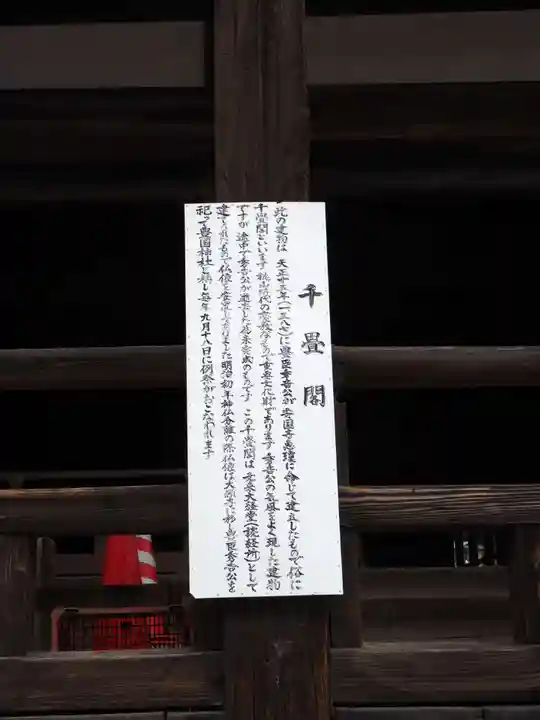 千畳閣
此の建物は 天正十五年(一五八七)に豊臣秀吉公が安国寺恵瓊に命じて建立したもので俗に
千畳閣といいます 桃山時代の豪放なもので重要文化財であります 秀吉公の気風をよく現した建物
ですが 途中で秀吉公が逝去した為未完成のものです この千畳閣は 元来大経堂(読経所)として
建てられたもので仏像を安置しておりました 明治初年神仏分離の際仏像は大願寺に移し豊臣秀吉公を
祀って豊国神社と称し毎年九月十八日に例祭がおこなわれます